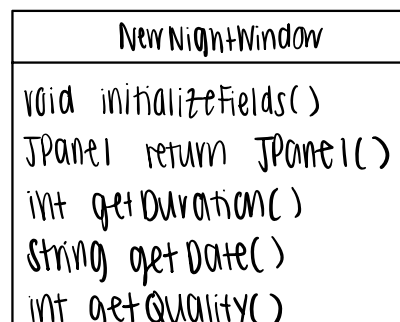 NewNightWindow
void initializeFields()
JPanel return JPanel()
int getDuration()
String getDate()
int getQuality()